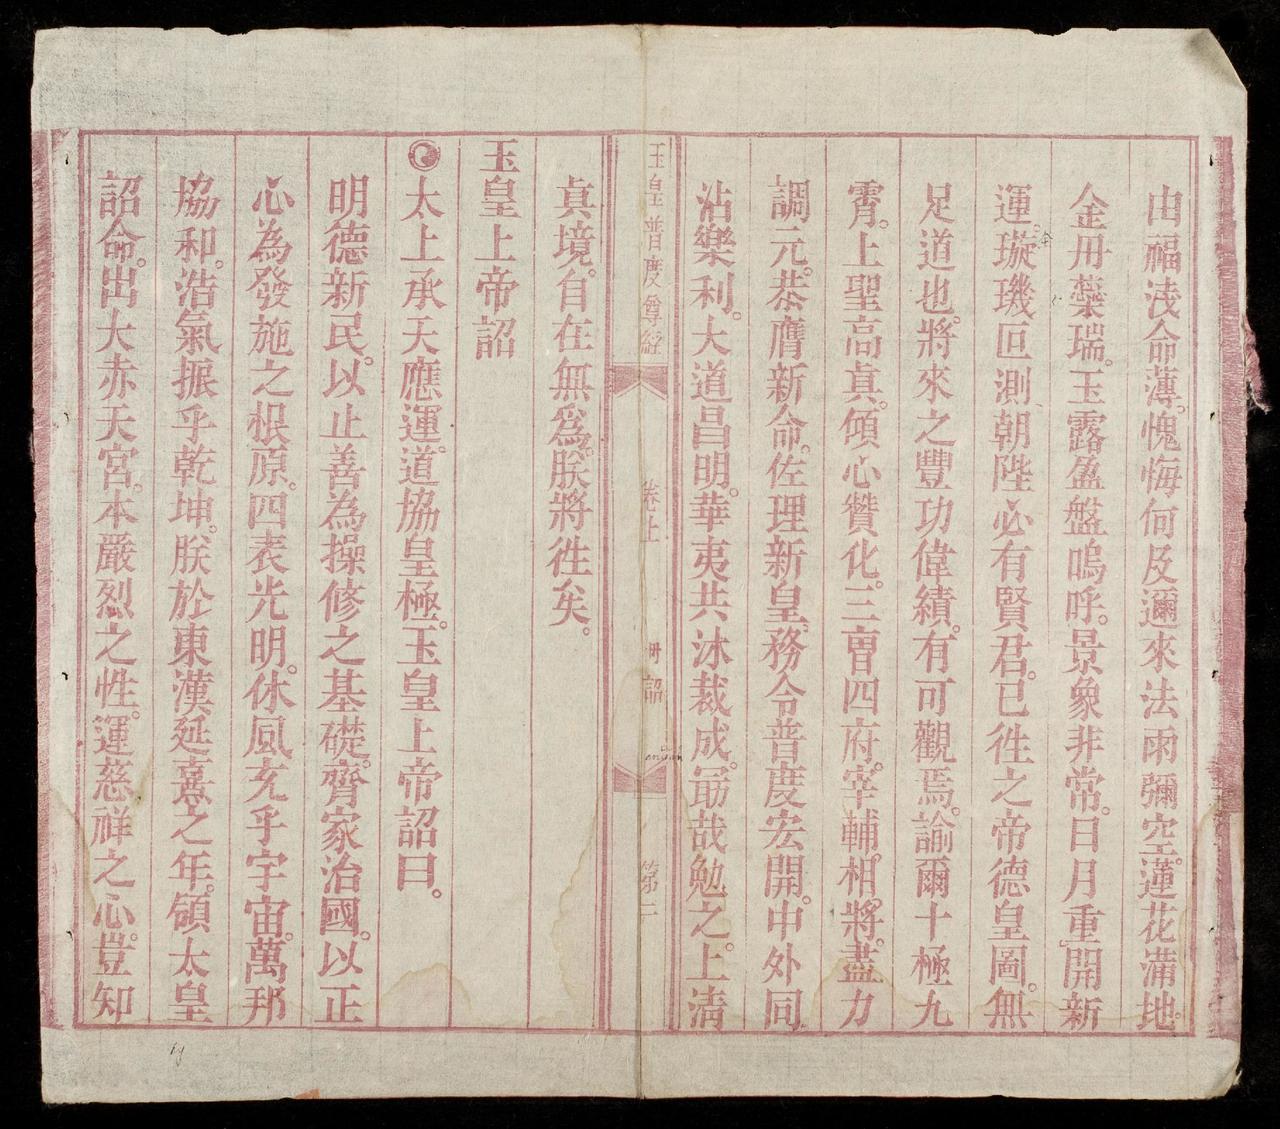 由福浅命薄。愧悔何及邇來法雨彌空。蓮花滿地。
金丹蘂瑞。玉露盈盤嗚呼。景象非常。日月重開新
運。璇璣叵測朝陛必有賢君。已徃之帝德皇圖。無
足道也。將來之豐功偉績。有可觀焉。諭爾十極九
霄。上聖高眞。傾心贊化。三曹四府。宰輔相。將。盡力
調元。恭膺新命。佐理新皇。務令普度宏開。中外同
沾樂利。大道昌明。華夷共沐裁成。勗哉勉之。上清
玉皇普度尊經 卷上 冊詔 第三
眞境。自在無爲。朕將徃矣。
玉皇上帝詔
太上承天應運。道協皇極。玉皇上帝詔曰。
明德新民。以止善為操修之基礎。齊家治國。以正
心為發施之根原。四表光明。休風充乎宇宙。萬邦
協和。浩氣振乎乾坤。朕於東漢延熹之年。領太皇
詔命。出大赤天宮。本嚴烈之性。運慈祥之心。豈知